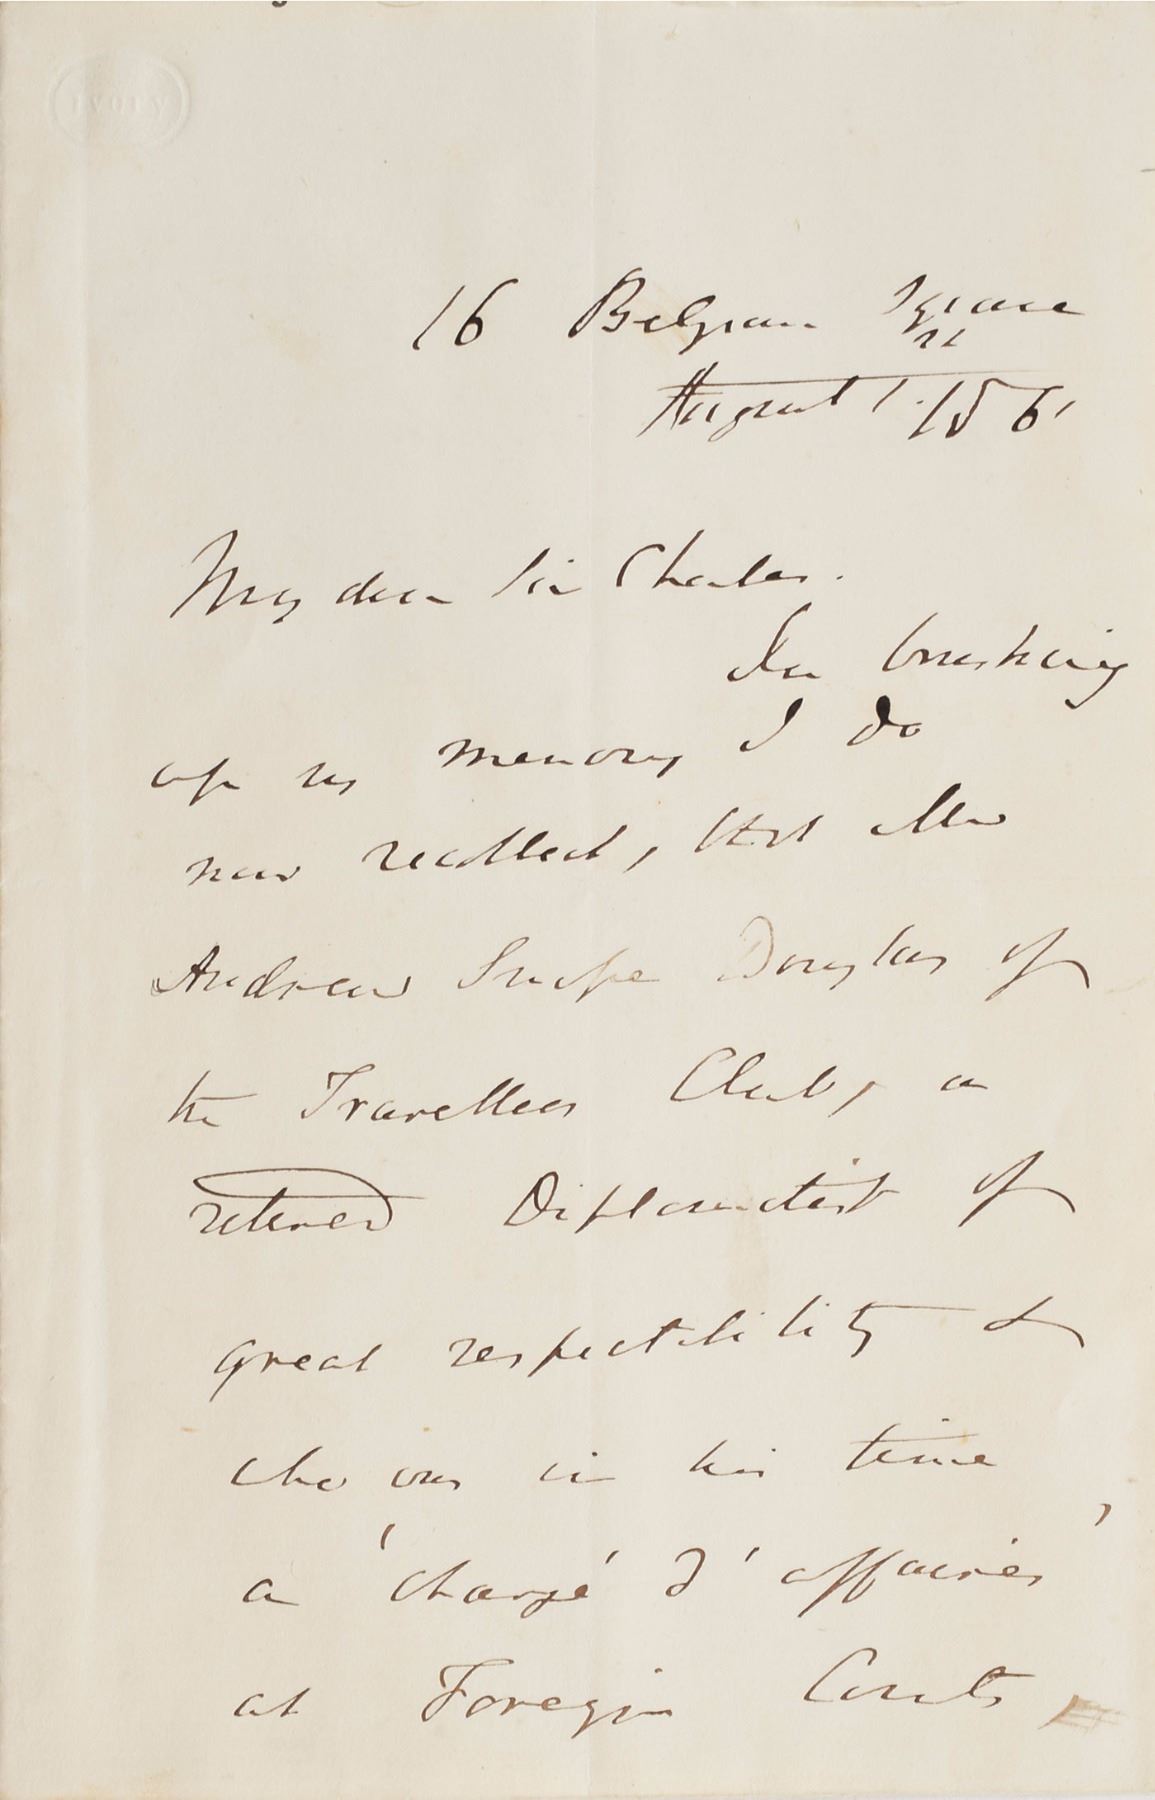 Ivory
16 Belgrave Square
August 1. 1861
My dear Sir Charles.
In brushing
up my memory I do
now recollect, that
Andrew Snape Douglas of
the Travellers Club, a
retired Diplomatist of
great respectability &
who was in his time
a 'chargé d'affaires'
at Foreign Courts,